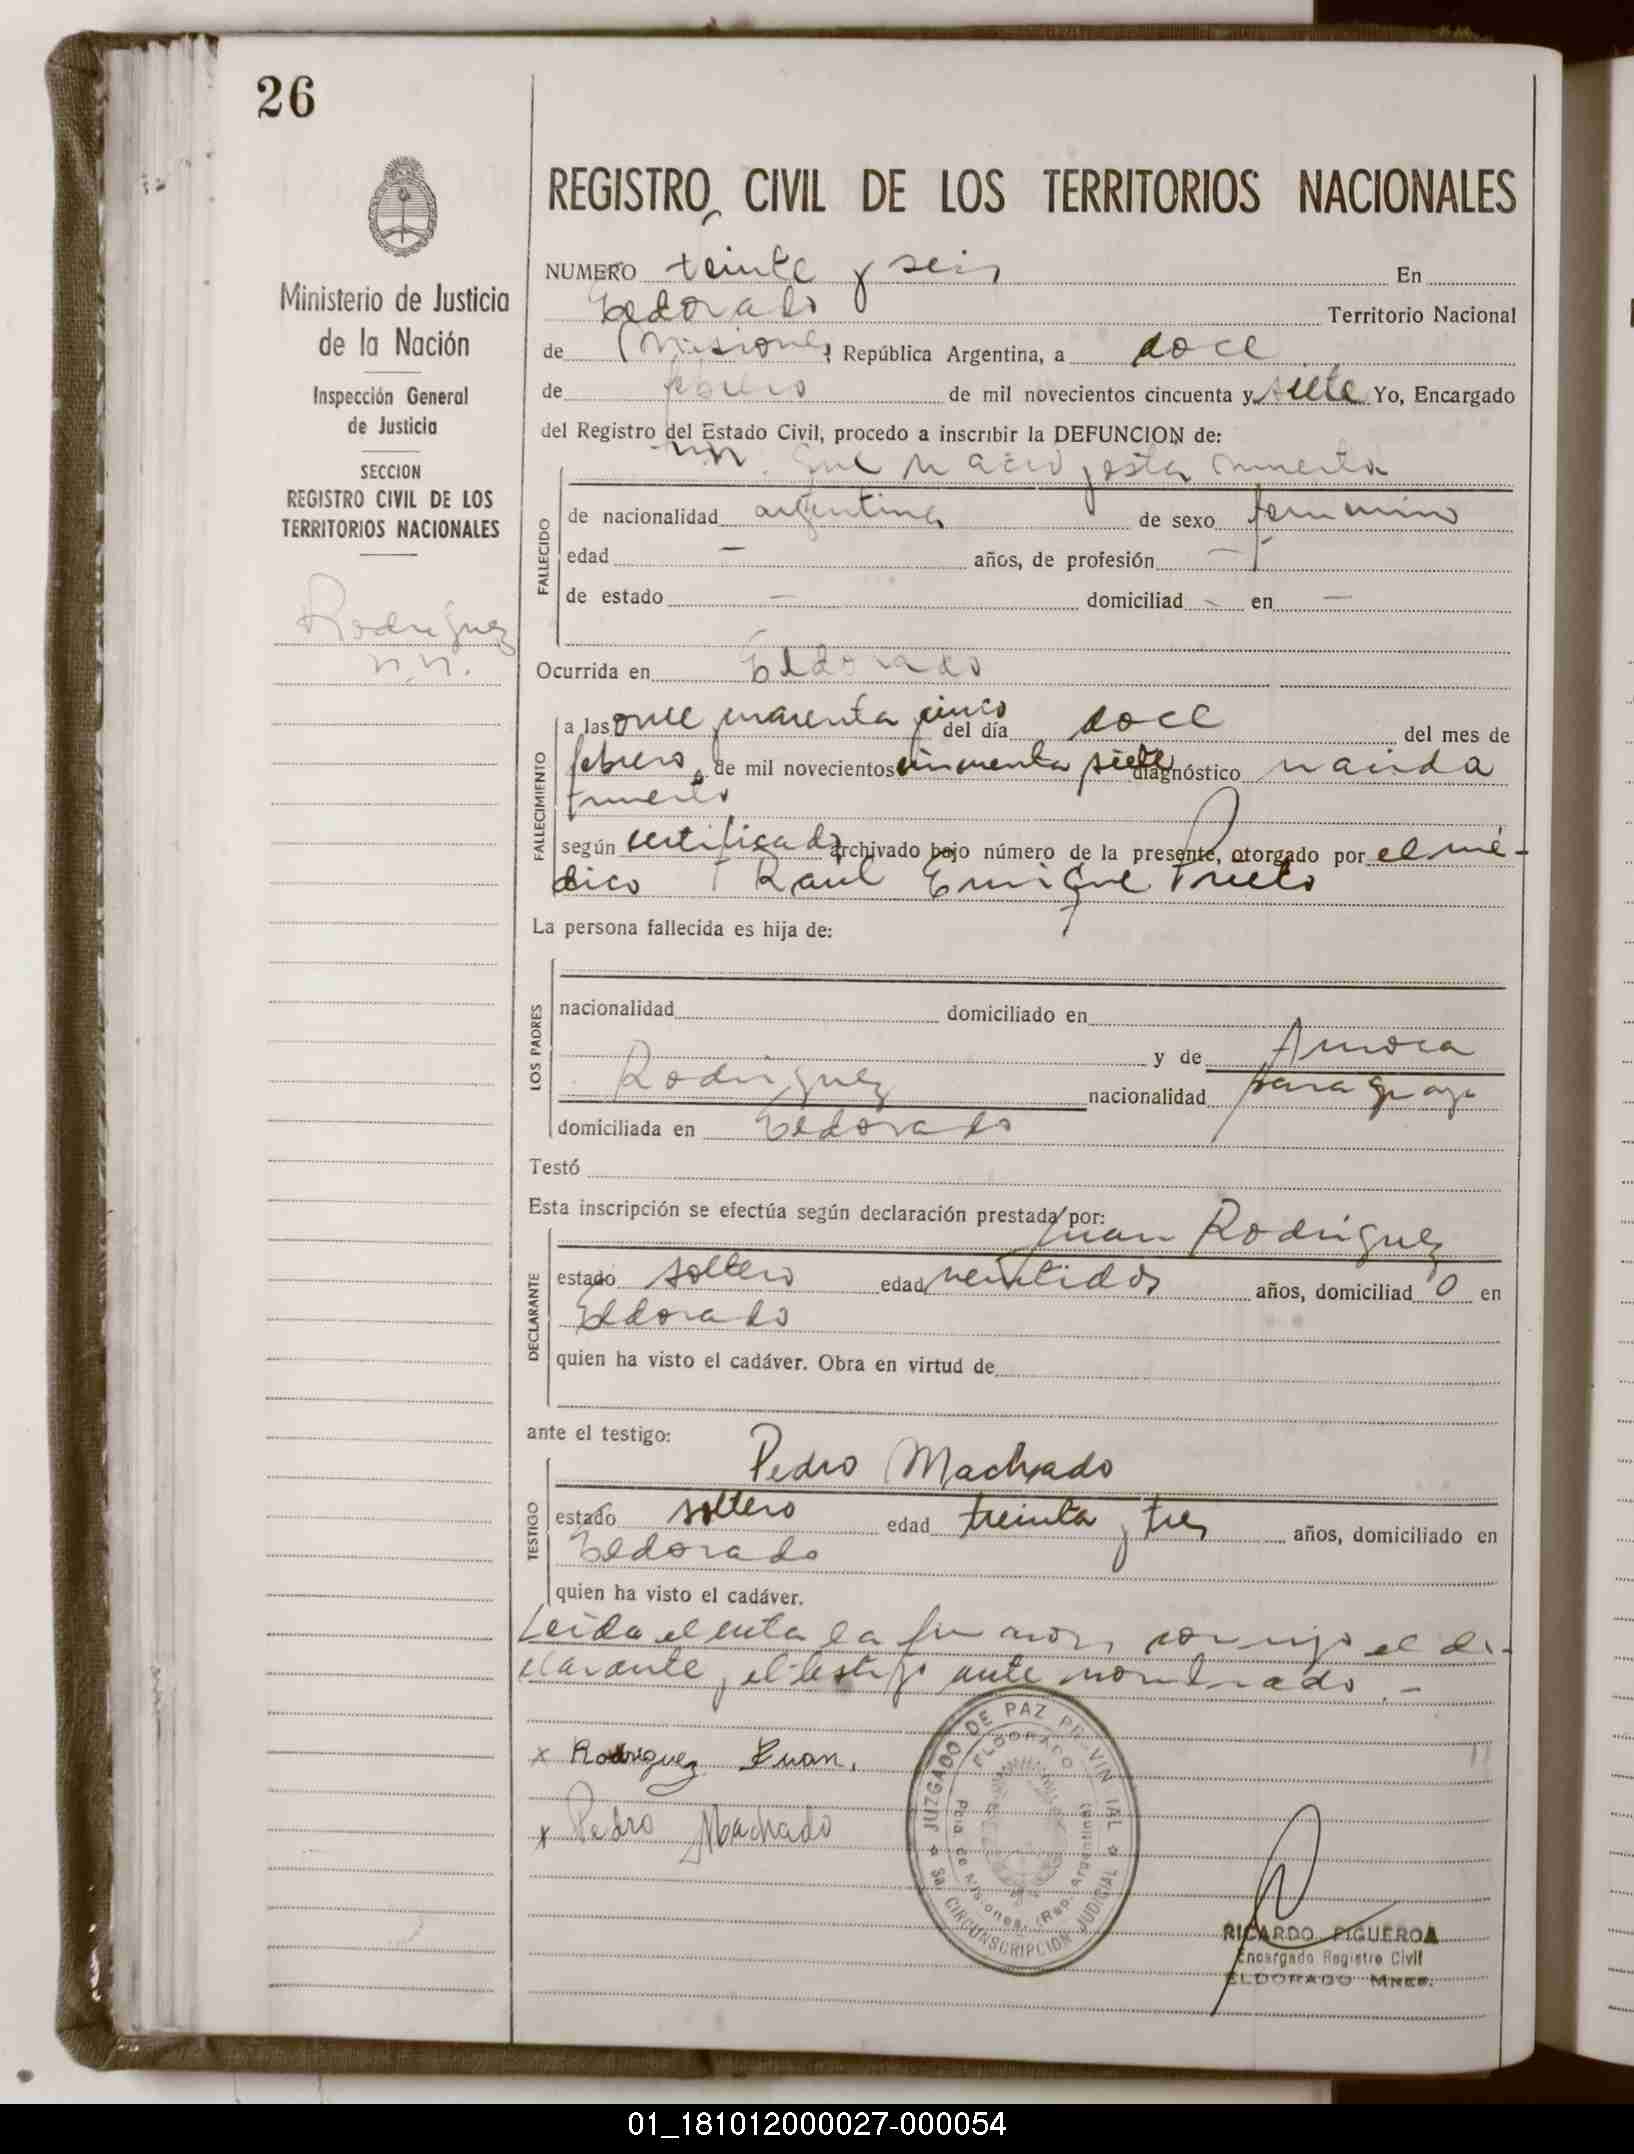 26
REGISTRO CIVIL DE LOS TERRITORIOS NACIONALES
Ministerio de Justicia
de la Nación
Inspección General
de Justicia
SECCION
REGISTRO CIVIL DE LOS
TERRITORIOS NACIONALES
Rodriguez
n.n.
NUMERO teinte y seis En
Eldorado Territorio Nacional
de Misiones, República Argentina, a doce
de febrero de mil novecientos cincuenta y siete Yo, Encargado
del Registro del Estado Civil, procedo a inscribir la DEFUNCION de:
n.n. que nacio esta muerta
FALLECIDO
de nacionalidad argentina de sexo femenino
edad — años, de profesión —
de estado — domiciliad - en —
Ocurrida en Eldorado
FALLECIMIENTO
a las once cuarenta y cinco del día doce del mes de
febrero, de mil novecientos cincuenta y siete diagnóstico nacida
muerta
según certificado archivado bajo número de la presente, otorgado por el mé-
dico Raul Enrique Prieto
La persona fallecida es hija de:
LOS PADRES
nacionalidad domiciliado en
y de
Rodriguez nacionalidad paraguaya
domiciliada en Eldorado
Testó
Esta inscripción se efectúa según declaración prestada por:
Juan Rodriguez
DECLARANTE
estado soltero edad veintidos años, domiciliad o en
Eldorado
quien ha visto el cadáver. Obra en virtud de
ante el testigo:
Pedro Machado
TESTIGO
estado soltero edad treinta y tres años, domiciliado en
Eldorado
quien ha visto el cadáver.
Leida el acta la firman conmigo el de-
clarante, el testigo ante nombrado.-
x Rodriguez Juan.
x Pedro Machado
JUZGADO DE PAZ PROVINCIAL
ELDORADO
Pcia. de Misiones. (Rep. Argentina)
5a. CIRCUNSCRIPCION JUDICIAL
RICARDO FIGUEROA
Encargado Registro Civil
ELDORADO Mnes.
01_181012000027-000054